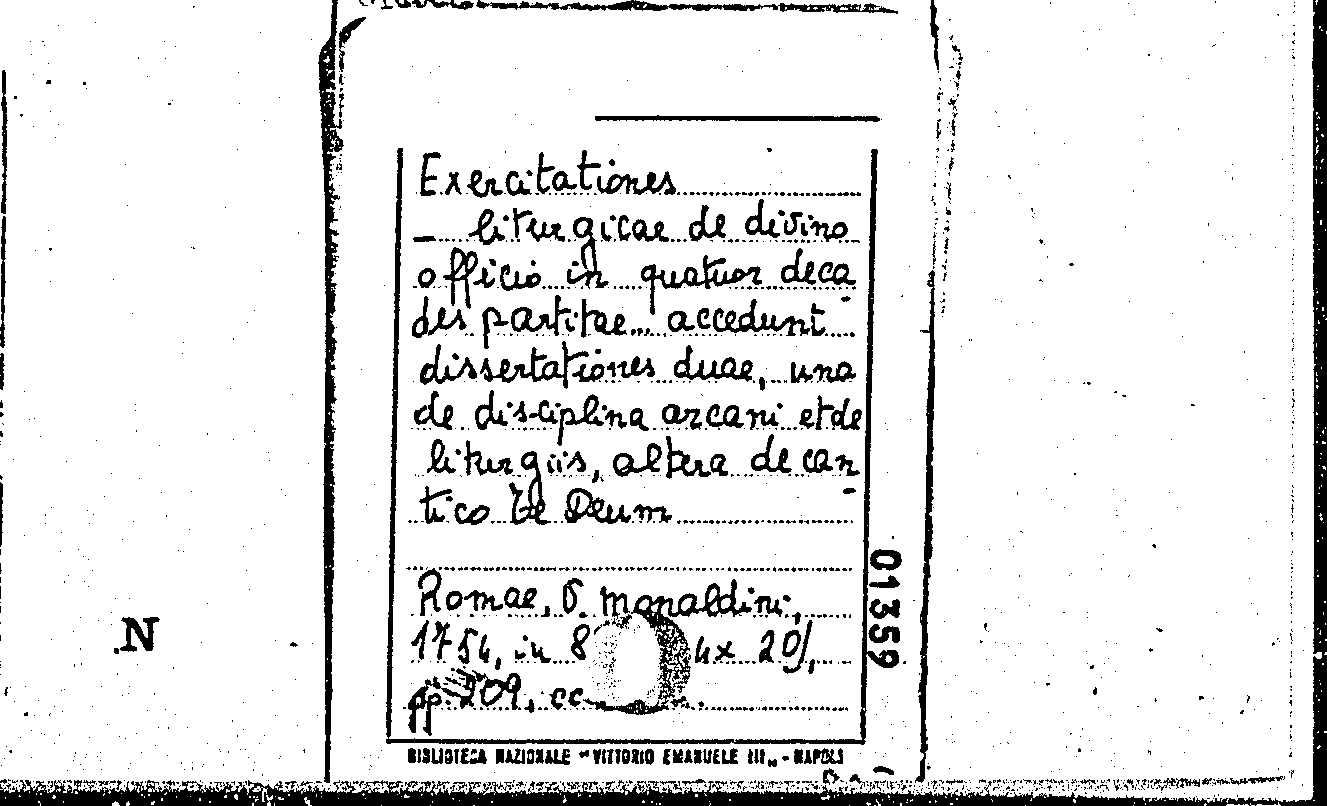 Exercitationes
– liturgicae de divino
officio in quatuor deca
des partitae... accedunt
dissertationes duae, una
de disciplina arcani et de
liturgiis, altera de can
tico Te Deum
Romae, V. Monaldini,
1754, in 8 4x 20),
pp. 209, cc.
BIBLIOTECA NAZIONALE "VITTORIO EMANUELE III" - NAPOLI
01359
N